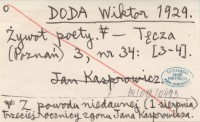 DODA Wiktor 1929.
Żywot poety. * — Tęcza
(Poznań) 3, nr 34: [3-4].
Jan Kasprowicz.
* Z powodu niedawnej (1 sierpnia)
trzeciej rocznicy zgonu Jana Kasprowicza.